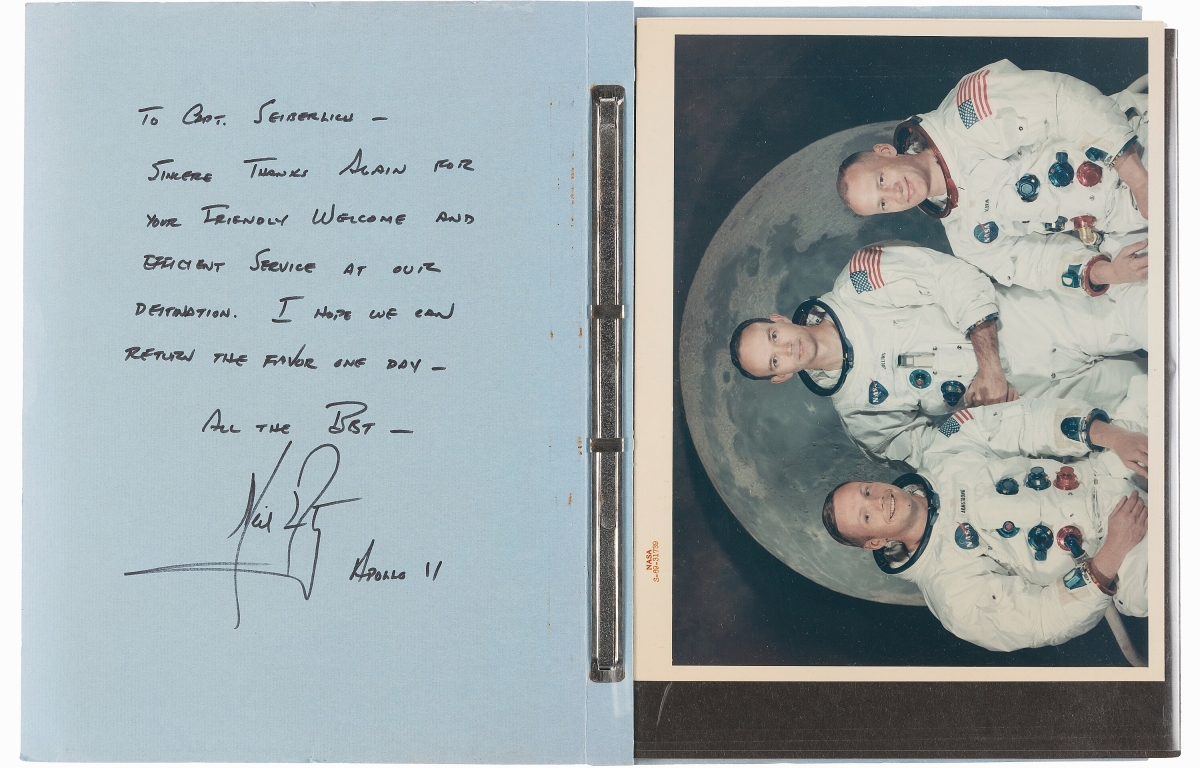 To Capt. Seiberlich —
Sincere Thanks Again for
your Friendly Welcome and
Efficient Service at our
Destination. I hope we can
return the favor one day —
All the Best —
Neil Armstrong
Apollo 11
NASA
S-69-31739
NASA
NASA
NASA